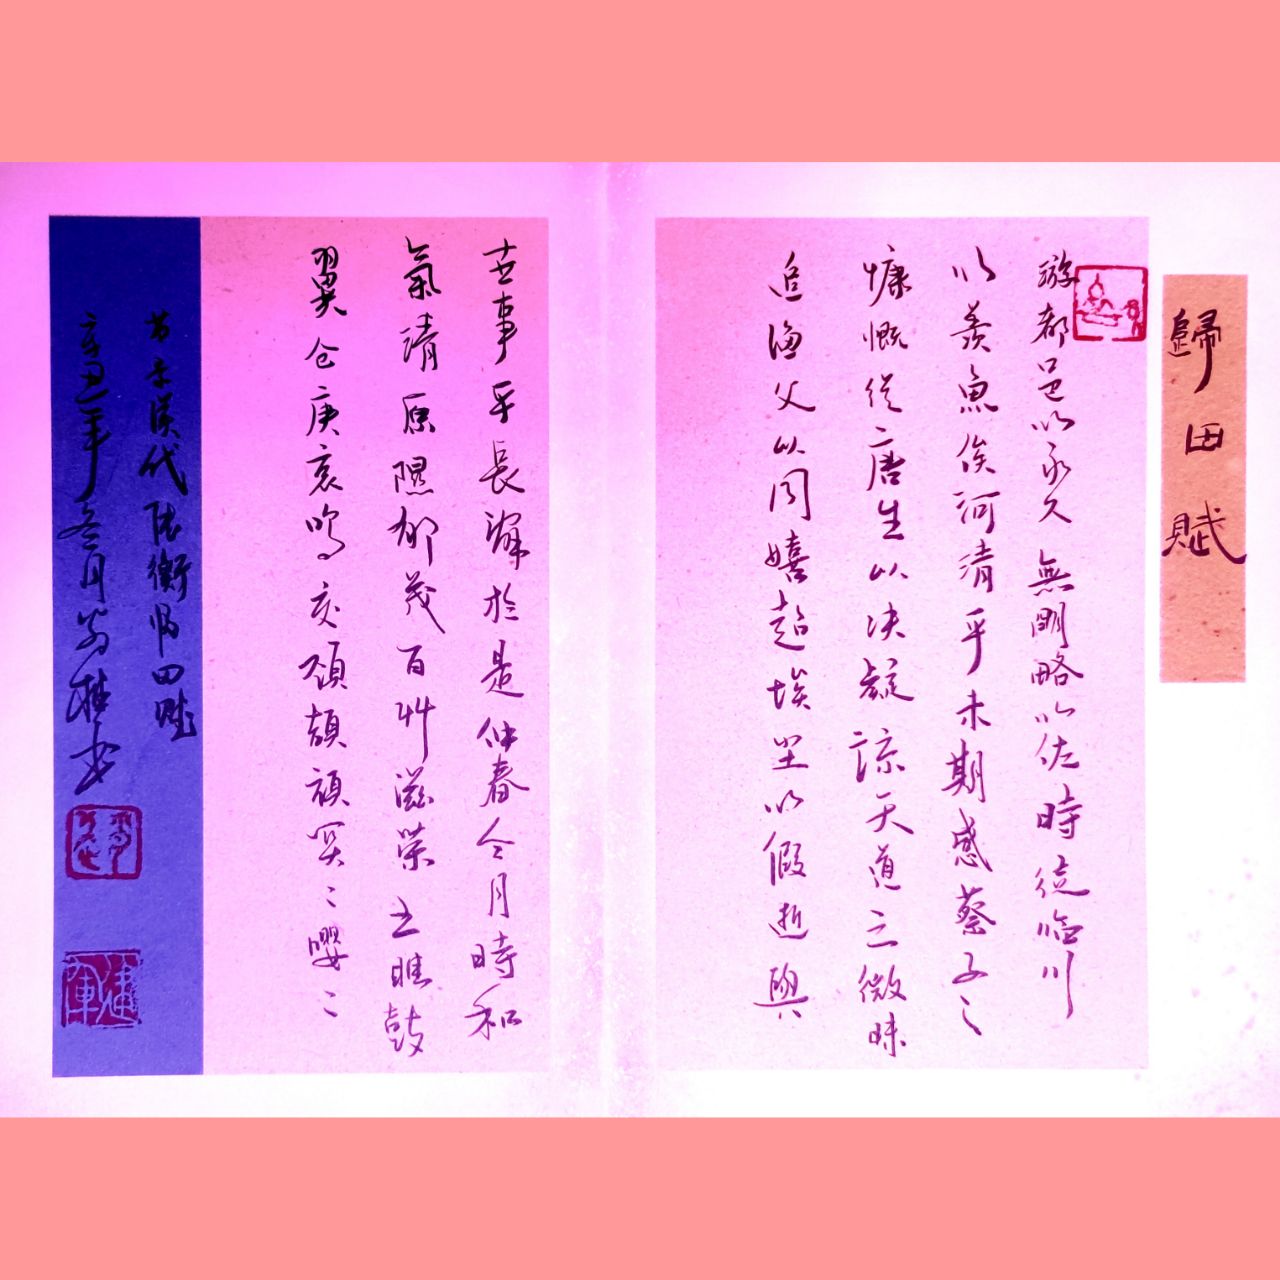 歸田賦
游都邑以永久無明略以佐時徒臨川
以羨魚俟河清乎未期感蔡子之
慷慨從唐生以決疑諒天道之微昧
追漁父以同嬉超埃塵以假逝與
世事乎長辭於是仲春令月時和
氣清原隰郁茂百艸滋榮王雎鼓
翼仓庚哀鳴交頸頡頏関〻嚶〻
节录漢代張衡归田賦
辛丑年冬月 书